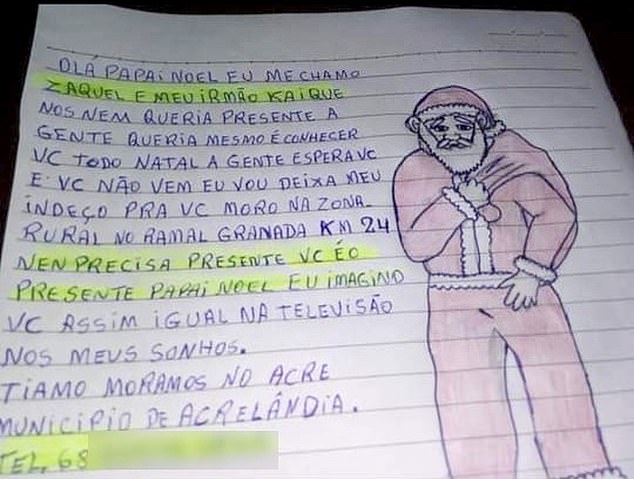 OLÁ PAPAI NOEL EU ME CHAMO
ZAQUEL E MEU IRMÃO KAIQUE
NOS NEM QUERIA PRESENTE A
GENTE QUERIA MESMO É CONHECER
VC TODO NATAL A GENTE ESPERA VC
E VC NÃO VEM EU VOU DEIXA MEU
INDEÇO PRA VC MORO NA ZONA
RURAL NO RAMAL GRANADA KM 24
NEN PRECISA PRESENTE VC É O
PRESENTE PAPAI NOEL EU IMAGINO
VC ASSIM IGUAL NA TELEVISÃO
NOS MEUS SONHOS.
TIAMO MORAMOS NO ACRE
MUNICIPIO DE ACRELÂNDIA.
TEL, 68